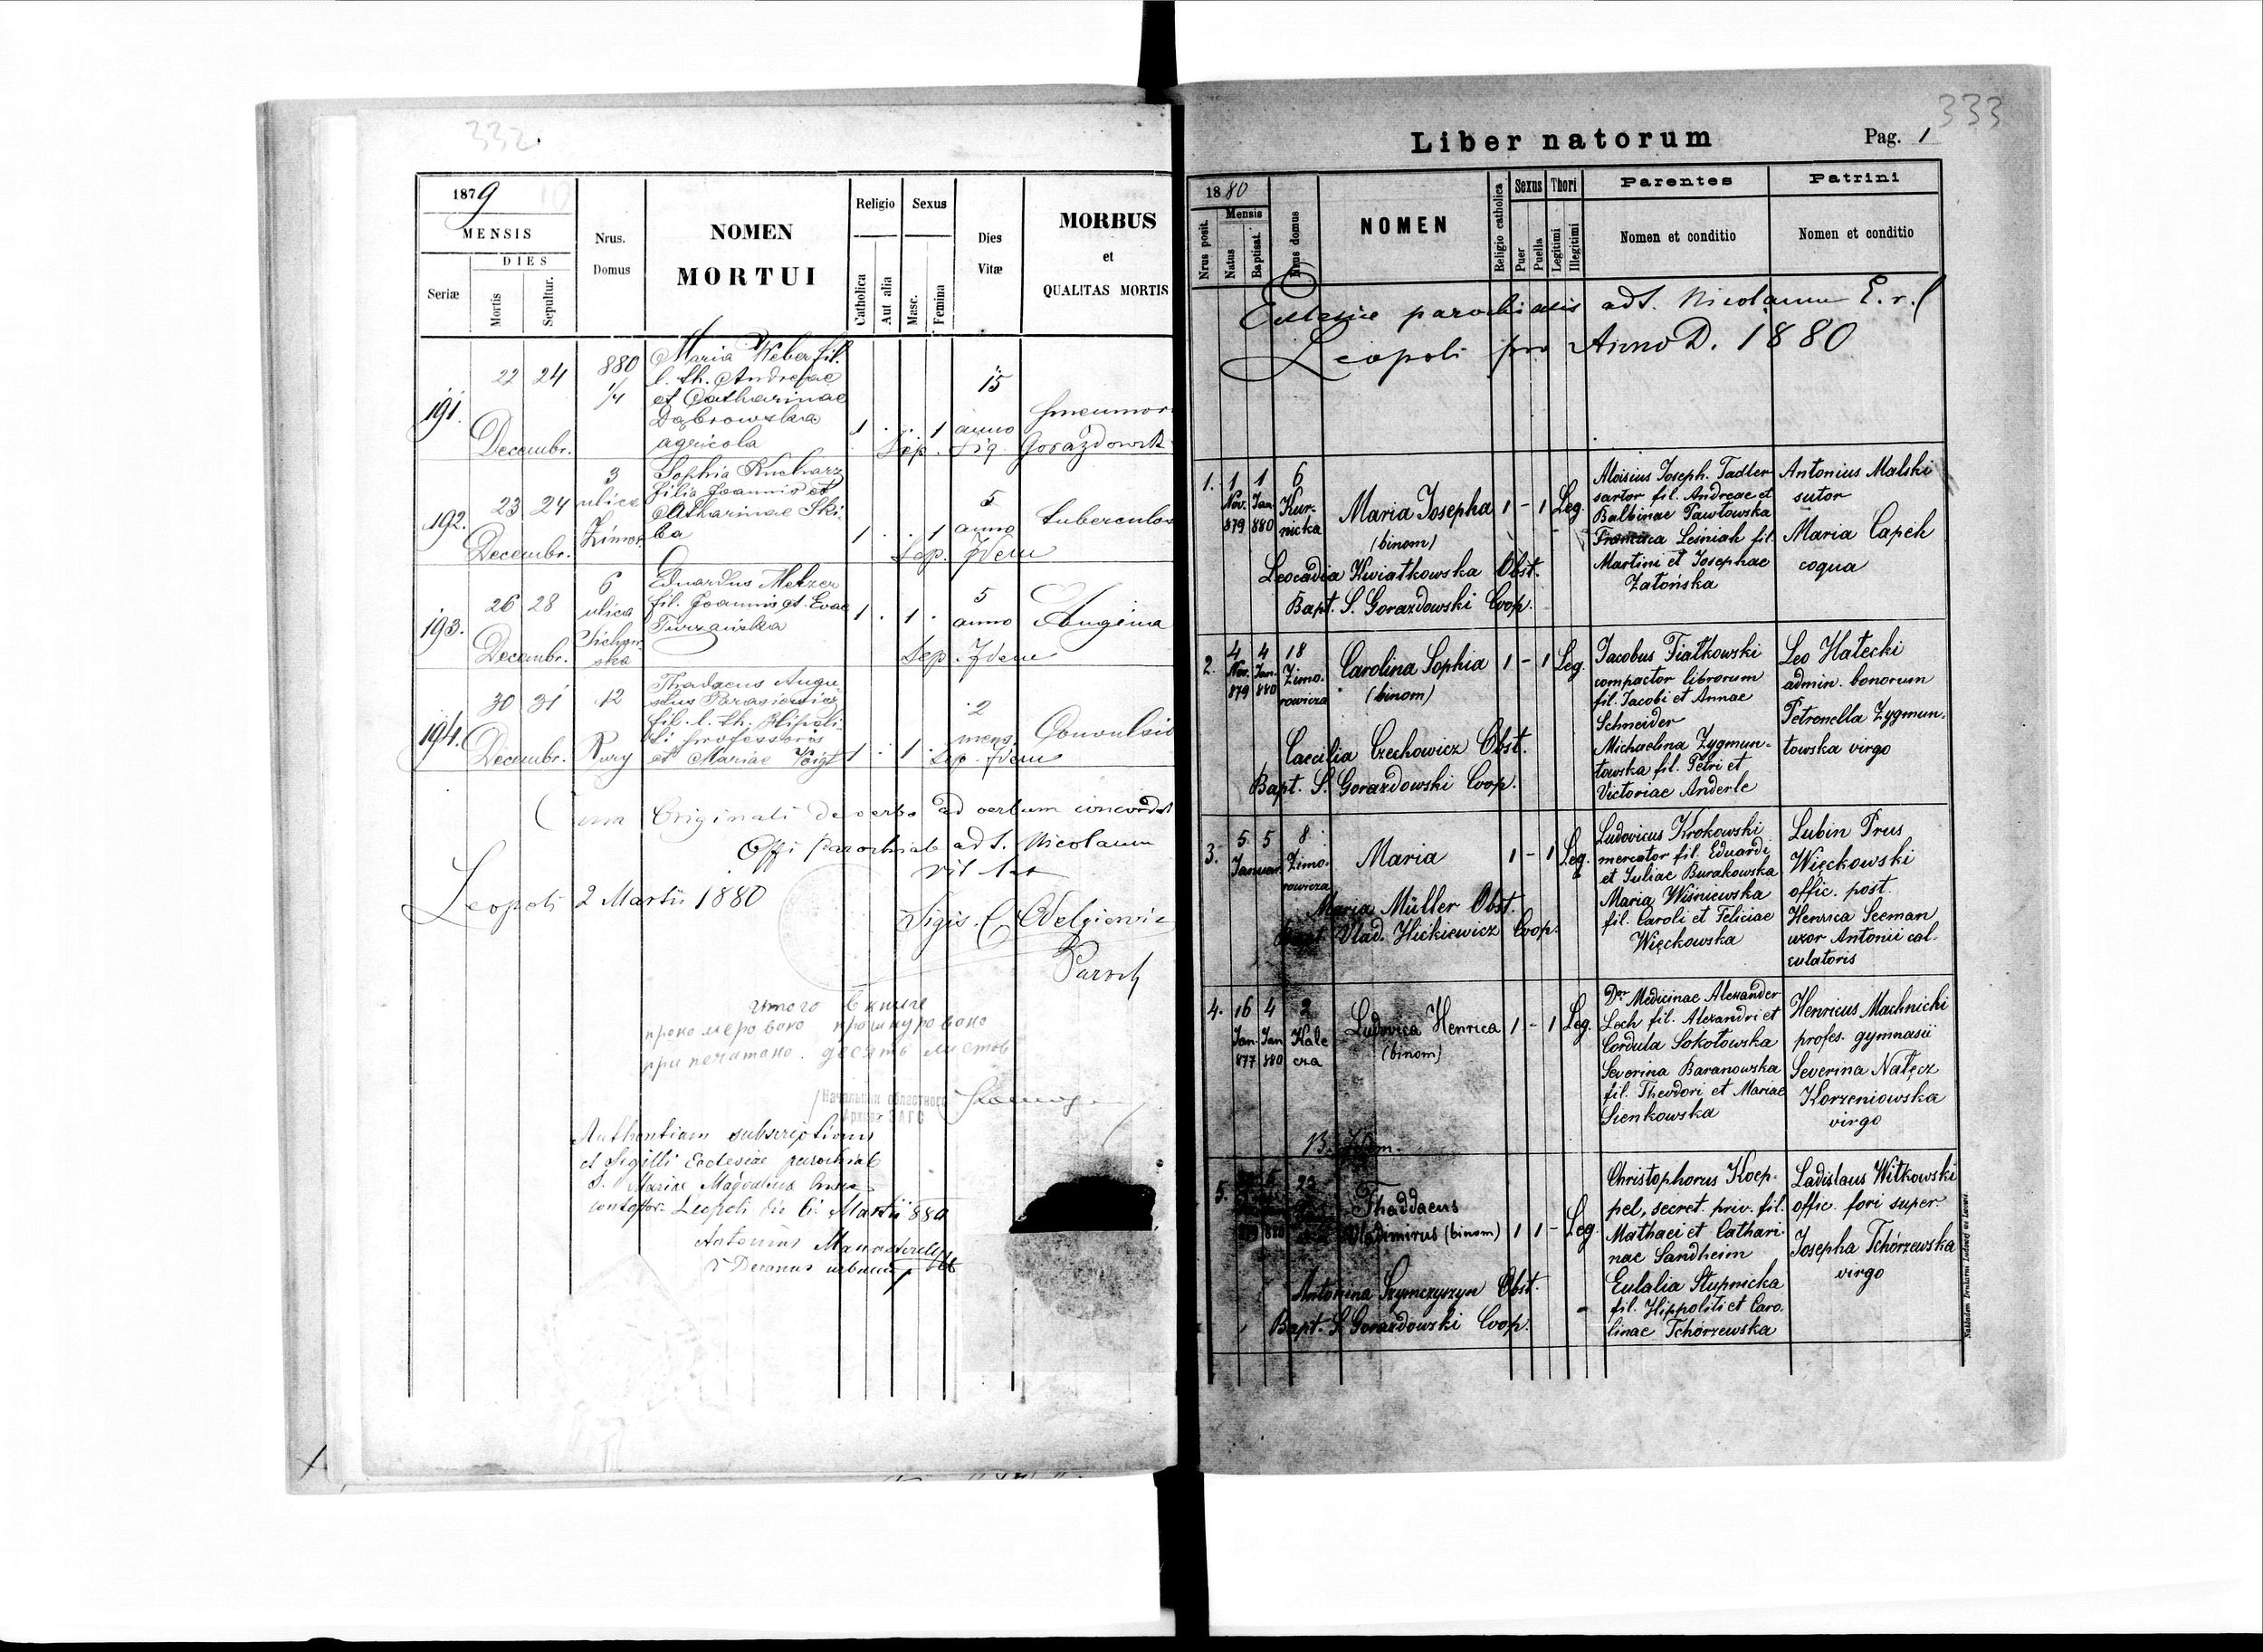 332.
1879
MENSIS
DIES
Seriæ
Mortis
Sepultur.
Nrus.
Domus
NOMEN
MORTUI
Religio
Catholica
Aut alia
Sexus
Masc.
Femina
Dies
Vitæ
MORBUS
et
QUALITAS MORTIS
191.
22 24
Decembr.
880
1/4
Maria Weber fil.
l. th. Andreae
et Catharinae
Dąbrowska
agricola
1 . . 1
15
anno
Sep.
Gorazdowsk
192.
23 24
Decembr.
3
ulica
Zimor.
Sophia Kucharz
filia Joannis et
Catharinae Ski-
ba
1 . . 1
5
anno
tuberculos
Sep. Idem
193.
26 28
Decembr.
6
ulica
Eduardus Melzer
fil. Joannis et Evae
Turzańska
1 . 1 .
5
anno
Angina
Sep. Idem
194.
30 31
Decembr.
12
Rury
Thadaeus Augu-
stus Parasiewicz
fil. l. th. Hipoli-
ti professoris
et Mariae Voigt
1 . 1 .
2
mens
Convulsio
Sep. Idem
Cum Originali de verbo ad verbum concordat
Offi parochiale ad S. Nicolaum
Leopoli 2 Martii 1880
Paroch
итого в книге
прономеровано прошнуровано
припечатано десять листов
Начальник областного
Архива ЗАГС
subscriptionis
et Sigilli Ecclesiae parochial
S. Mariae Magdalena
Leopoli die Martii 880
Antonius
Decanus urbanus
333
Liber natorum
Pag. 1
1880
Nrus posit.
Mensis
Natus
Baptisat.
Nrus domus
NOMEN
Religio catholica
Sexus
Puer
Puella
Thori
Legitimi
Illegitimi
Parentes
Nomen et conditio
Patrini
Nomen et conditio
Ecclesiae parochialis ad S. Nicolaum E. r. l
Leopoli pro Anno D. 1880
1.
1 1
Nov. Jan.
879 880
6
Kur-
nicka
Maria Josepha
(binom)
1 - 1 Leg.
Leocadia Kwiatkowska Obst.
Bapt. S. Gorazdowski Coop.
Aloisius Joseph. Tadler
sartor fil. Andreae et
Balbinae Pawłowska
Leśniak fil.
Martini et Josephae
Zatońska
Antonius Malski
sutor
Maria Capek
coqua
2.
4 4
Nov. Jan.
879 880
18
Zimo-
rowicza
Carolina Sophia
(binom)
1 - 1 Leg.
Caecilia Czechowicz Obst.
Bapt. S. Gorazdowski Coop.
Jacobus Fiałkowski
compactor librorum
fil. Jacobi et Annae
Schneider
Michaelina Zygmun-
towska fil. Petri et
Victoriae Anderle
Leo Hałecki
admin. bonorum
Petronella Zygmun-
towska virgo
3.
5 5
Januar.
8
Zimo-
rowicza
Maria
1 - 1 Leg.
Maria Müller Obst.
Bapt. Vlad. Hićkiewicz Coop.
Ludovicus Krokowski
mercator fil. Eduardi
et Juliae Burakowska
Maria Wiśniewska
fil. Caroli et Feliciae
Więckowska
Lubin Prus
Więckowski
offic. post.
Henrica Seeman
uxor Antonii cal-
culatoris
4.
16 4
Jan. Jan.
877 880
2
Kale
cza
Ludovica Henrica
(binom)
1 - 1 Leg.
B. Idem.
Dor Medicinae Alexander
Lech fil. Alexandri et
Cordula Sokołowska
Severina Baranowska
fil. Theodori et Mariae
Sienkowska
Henricus Machnicki
profes. gymnasii
Severina Nałęcz
Korzeniowska
virgo
5.
879 880
Thaddaeus
Wladimirus (binom)
1 1 - Leg.
Antonina Szymczyszyn Obst.
Bapt. S. Gorazdowski Coop.
Christophorus Koep-
pel, secret. priv. fil.
Mathaei et Cathari-
nae Sandheim
Eulalia Stupnicka
fil. Hippoliti et Caro-
linae Tchórzewska
Ladislaus Witkowski
offic. fori super.
Josepha Tchórzewska
virgo